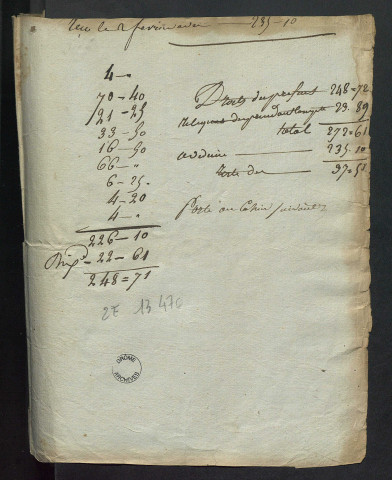 Reçu le 2 fevrier 235-10
4-"
70-40
21-25
33-50
16-50
66-"
6-25
4-20
4-"
226-10
22-61
248=71
Droits du present 248-72
23.89
total 272=61
a déduire 235.10
reste du 37=51
Porté au Cahier suivant
2E 13476
DROME
ARCHIVES